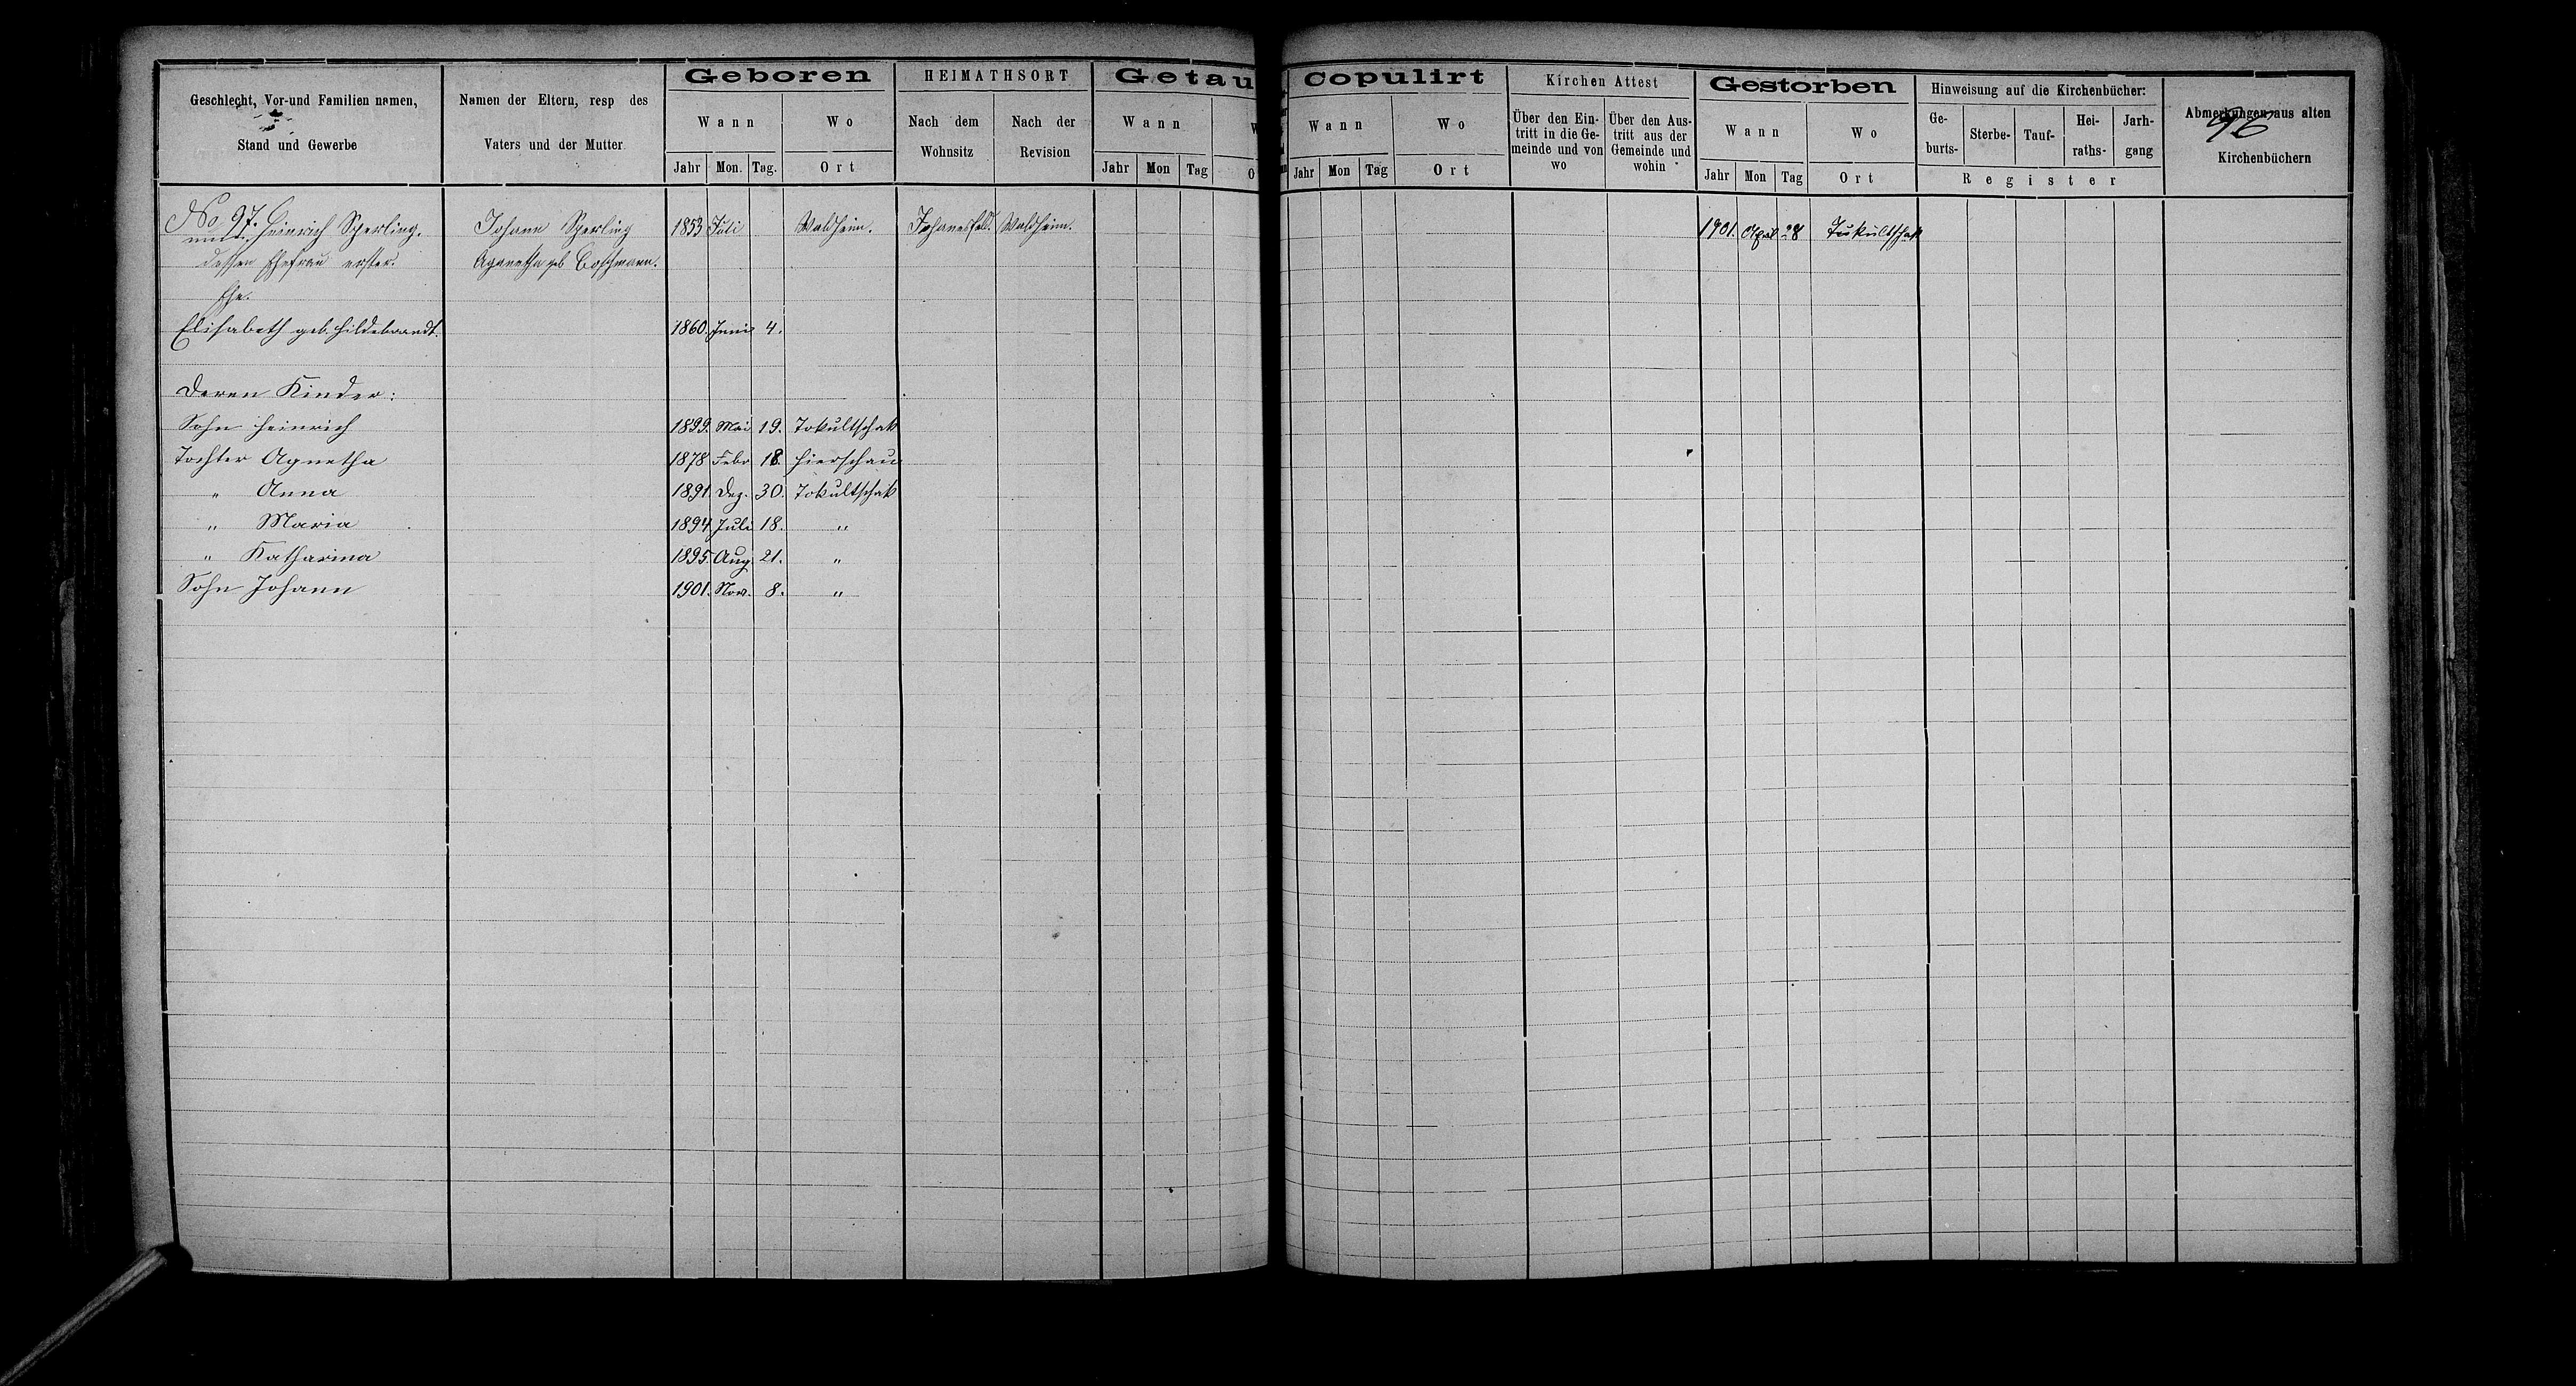 Geschlecht, Vor-und Familien namen,
Stand und Gewerbe
Namen der Eltern, resp des
Vaters und der Mutter
Geboren
Wann
Wo
Jahr Mon. Tag. Ort
HEIMATHSORT
Nach dem Wohnsitz
Nach der Revision
Getau
Wann
Jahr Mon Tag
Copulirt
Wann
Wo
Jahr Mon Tag Ort
Kirchen Attest
Über den Ein-
tritt in die Ge-
meinde und von
wo
Über den Aus-
tritt aus der
Gemeinde und
wohin
Gestorben
Wann
Wo
Jahr Mon Tag Ort
Hinweisung auf die Kirchenbücher:
Ge-
burts-
Sterbe-
Tauf-
Hei-
raths-
Jarh-
gang
Register
Abmerkungen aus alten
96
Kirchenbüchern
No 97. Heinrich Sperling. Johann Sperling 1853 Juli Waldheim. Johannesfeld. Waldheim. 1901. April 28 Tukultschak
und
dessen Ehefrau erster. Aganetha geb Boschmann.
Ehe.
Elisabeth geb. Hildebrandt. 1860. Juni 4.
Deren Kinder:
Sohn Heinrich 1899. Mai 19. Tokultschak
Tochter Agnetha 1878 Febr 18. Hierschau
" Anna 1891. Dez. 30. Tokultschak
" Maria 1894 Juli 18. "
" Katharina 1895. Aug 21. "
Sohn Johann 1901. Nov. 8. "